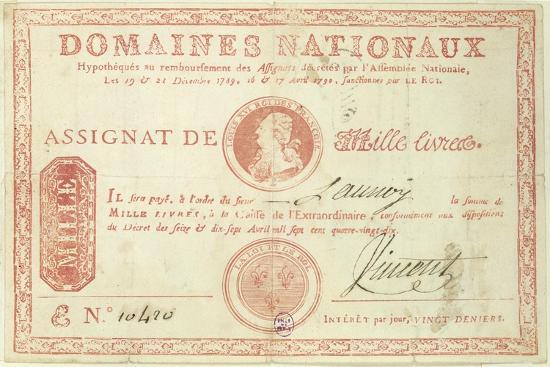 DOMAINES NATIONAUX
Hypothéqués au remboursement des Assignats décrétés par l'Assemblée Nationale,
Les 19 & 21 Décembre 1789, 16 & 17 Avril 1790, sanctionnés par LE ROI.
LOUIS XVI ROI DES FRANÇAIS
ASSIGNAT DE Mille livres.
MILLE
IL sera payé, à l'ordre du sieur Launoy la somme de
MILLE LIVRES, à la Caisse de l'Extraordinaire, conformément aux dispositions
du Décret des seize & dix-sept Avril mil sept cent quatre-vingt-dix.
Vincent
LA LOI ET LE ROI
N.° 10420
INTÉRÊT par jour, VINGT DENIERS.